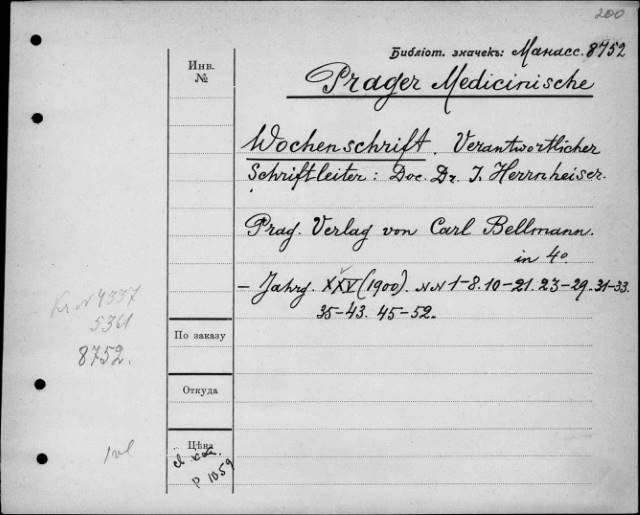 200
Библіот. значекъ: Манасс. 8752
Инв.
№
Prager Medicinische
Wochenschrift. Verantwortlicher
Schriftleiter: Doc. Dr. I. Herrnheiser.
Prag. Verlag von Carl Bellmann.
in 4º
- Jahrg. XXV (1900). NN 1-8. 10-21. 23-29. 31-33.
35-43. 45-52.
4337
5361
8752.
По заказу
Откуда
Цѣна
P 1059